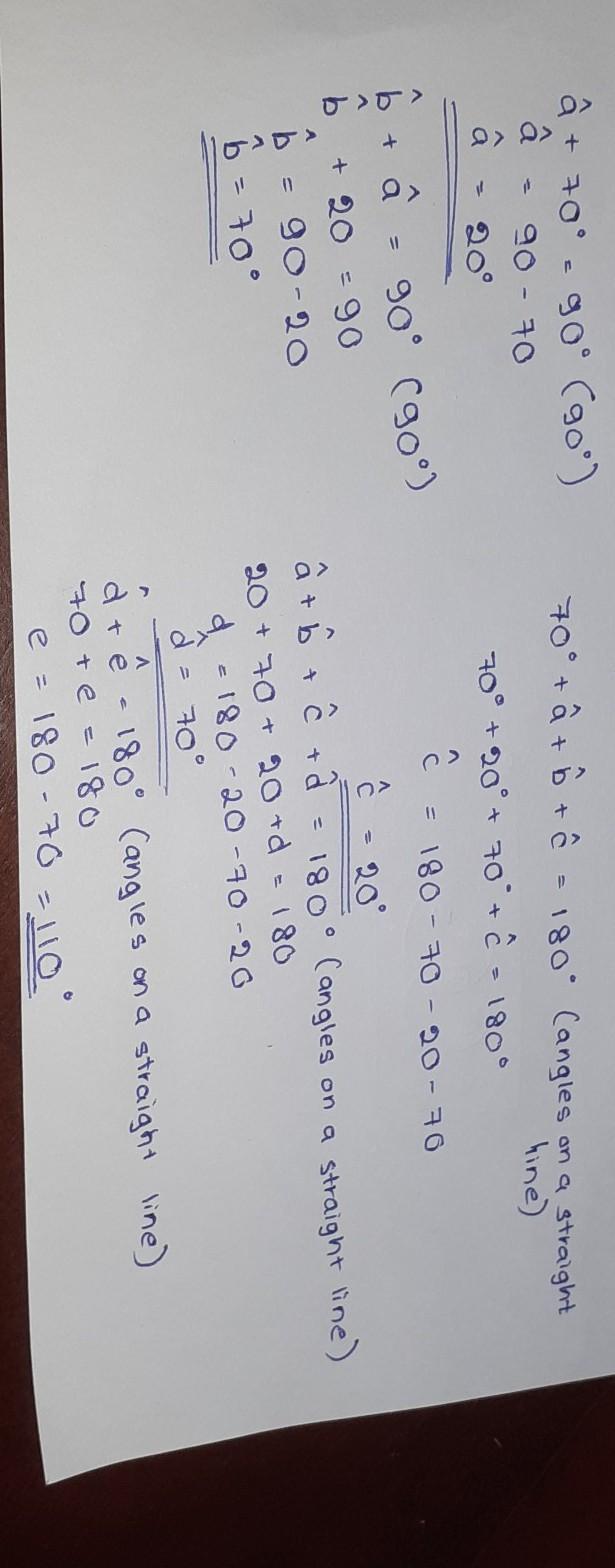 â + 70° = 90° (90°)
â = 90 - 70
â = 20°
b̂ + â = 90° (90°)
b̂ + 20 = 90
b̂ = 90 - 20
b̂ = 70°
70° + â + b̂ + ĉ = 180° (angles on a straight
line)
70° + 20° + 70° + ĉ = 180°
ĉ = 180 - 70 - 20 - 70
ĉ = 20°
â + b̂ + ĉ + d̂ = 180° (angles on a straight line)
20 + 70 + 20 + d = 180
d̂ = 180 - 20 - 70 - 20
d̂ = 70°
d̂ + ê = 180° (angles on a straight line)
70 + e = 180
e = 180 - 70 = 110°